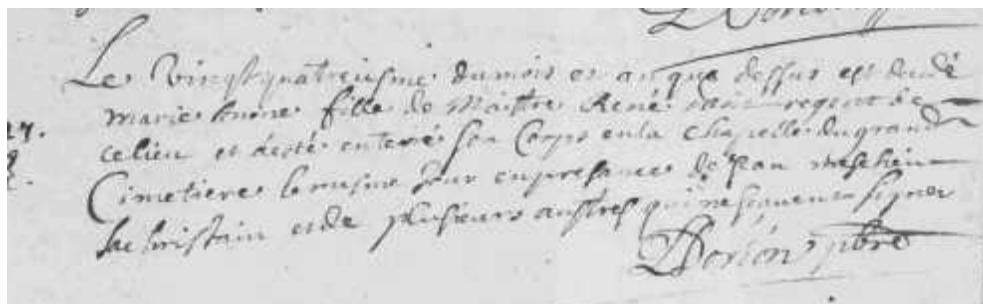 Le vingt quatreiesme du mois et an que dessus est decedé
marie fille de Maistre René regent de
ce lieu et a esté enterré son corps en la chapelle du grand
Cimetiere le mesme jour en presance de Jean meschein
sacristain et de plusieurs austres qui ne sçavent signer
Dorion pbre